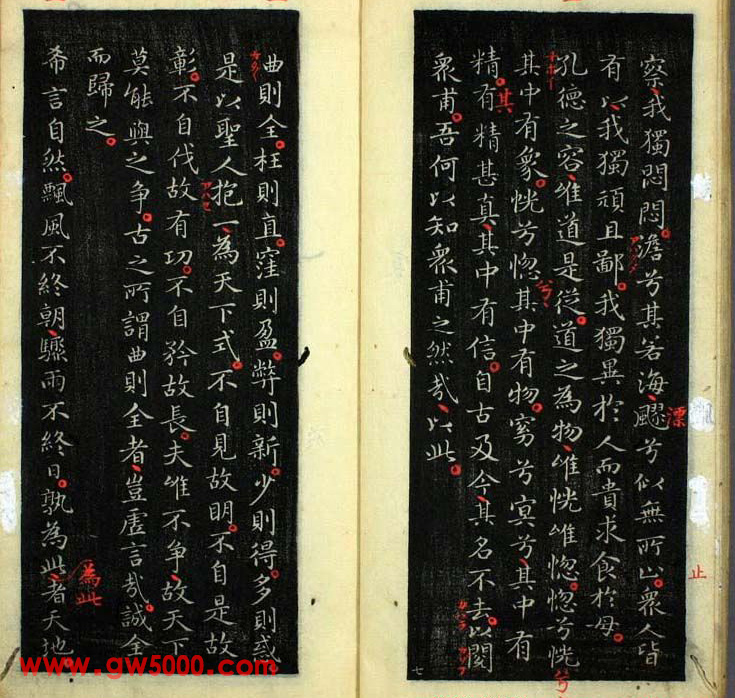 察我獨悶悶澹兮其若海飂兮似無所止衆人皆
有以我獨頑且鄙我獨異於人而貴求食於母
孔德之容唯道是從道之為物唯恍唯惚惚兮恍
其中有象恍兮惚其中有物窈兮冥兮其中有
精有精甚真其中有信自古及今其名不去以閱
衆甫吾何以知衆甫之然哉以此
漂
止
其
兮
兮
七
曲則全枉則直窪則盈弊則新少則得多則惑
是以聖人抱一為天下式不自見故明不自是故
彰不自伐故有功不自矜故長夫唯不争故天下
莫能與之争古之所謂曲則全者豈虛言哉誠全
而歸之
希言自然飄風不終朝驟雨不終日孰為此者天地
為此
www.gw5000.com